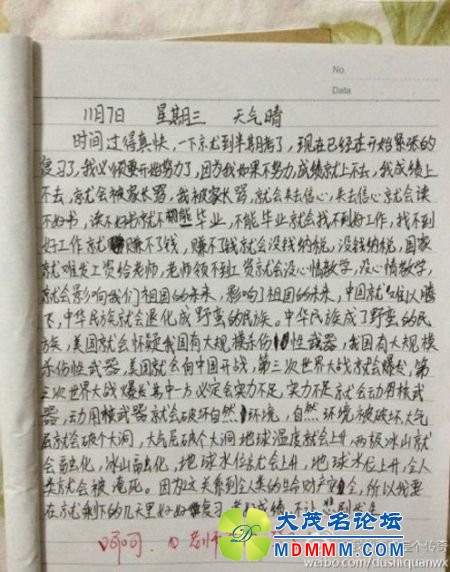 No.
Data
11月7日 星期三 天气晴
时间过得真快,一下京尤到半期考了,现在已经在开始紧张的
复习了,我必须要开始努力了,因为我如果不努力,成绩就上不去,我成绩上
不去,就会被家长骂,我被家长骂,就会失去信心,失去信心就会读
不好书,读不好书就不能毕业,不能毕业就会找不到好工作,找不到
好工作就赚不了钱,赚不了钱就会没钱纳税,没钱纳税,国家
就难发工资给老师,老师领不到工资就会没心情教学,没心情教学,
就会影响我们祖国的未来,影响了祖国的未来,中国就难以腾
飞,中华民族就会退化成野蛮的民族。中华民族成了野蛮的民
族,美国就会怀疑我国有大规模杀伤性武器,我国有大规模
杀伤性武器,美国就会向中国开战,第三次世界大战就会爆发,第
三次世界大战爆发其中一方必定会实力不足,实力不足就会动用核武
器,动用核武器就会破坏自然环境,自然环境被破坏,大气
层就会破个大洞,大气层破个大洞地球温度就会上升,两极冰山就
会融化,冰山融化,地球水位就会上升,地球水位上升,全人
类就会被淹死。因为这关系到全人类的生命财产安全,所以我要
在就剩下的几天里好好复习,成绩,不让悲剧发生
呵呵.
大茂名论坛
MDMMM.COM
weibo.com/dushiquanwx